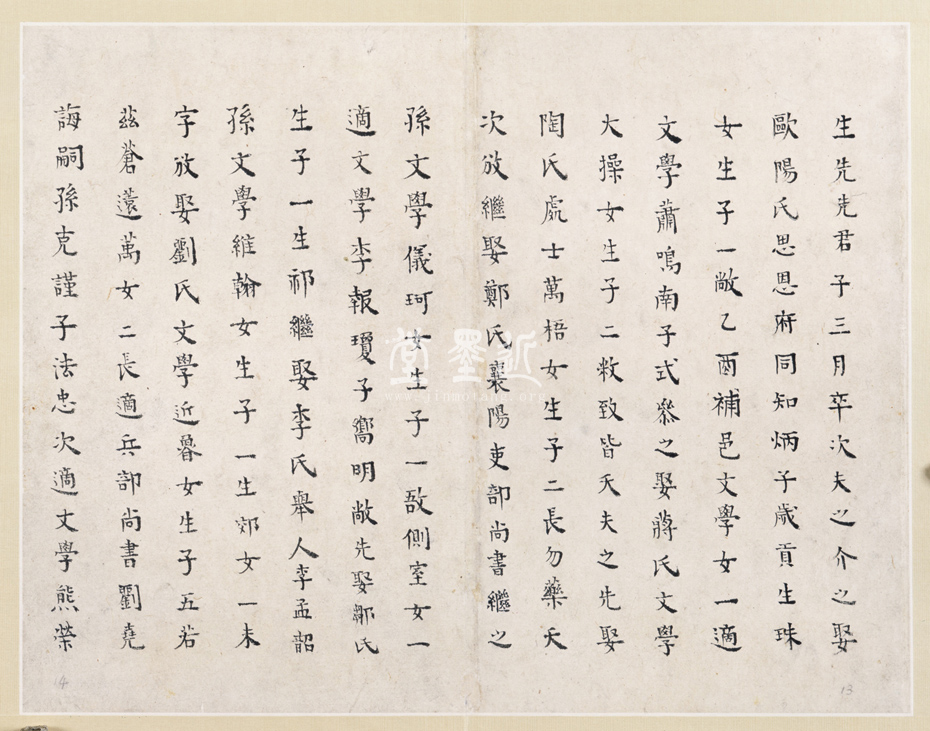 生先先君子三月卒次夫之介之娶
歐陽氏思恩府同知炳子歲貢生珠
女生子一敞乙酉補邑文學女一適
文學蕭鳴南子式叅之娶蔣氏文學
大操女生子二敉致皆夭夫之先娶
陶氏處士萬梧女生子二長勿藥夭
次攽繼娶鄭氏襄陽吏部尚書繼之
孫文學儀珂女生子一敔側室女一
適文學李報瓊子嚮明敞先娶鄒氏
生子一生祁繼娶李氏舉人李孟韶
孫文學維翰女生子一生郊女一未
字攽娶劉氏文學近魯女生子五若
茲蒼薳萬女二長適兵部尚書劉堯
誨嗣孫克謹子法忠次適文學熊榮
13
14
近墨堂
www.jinmotang.org